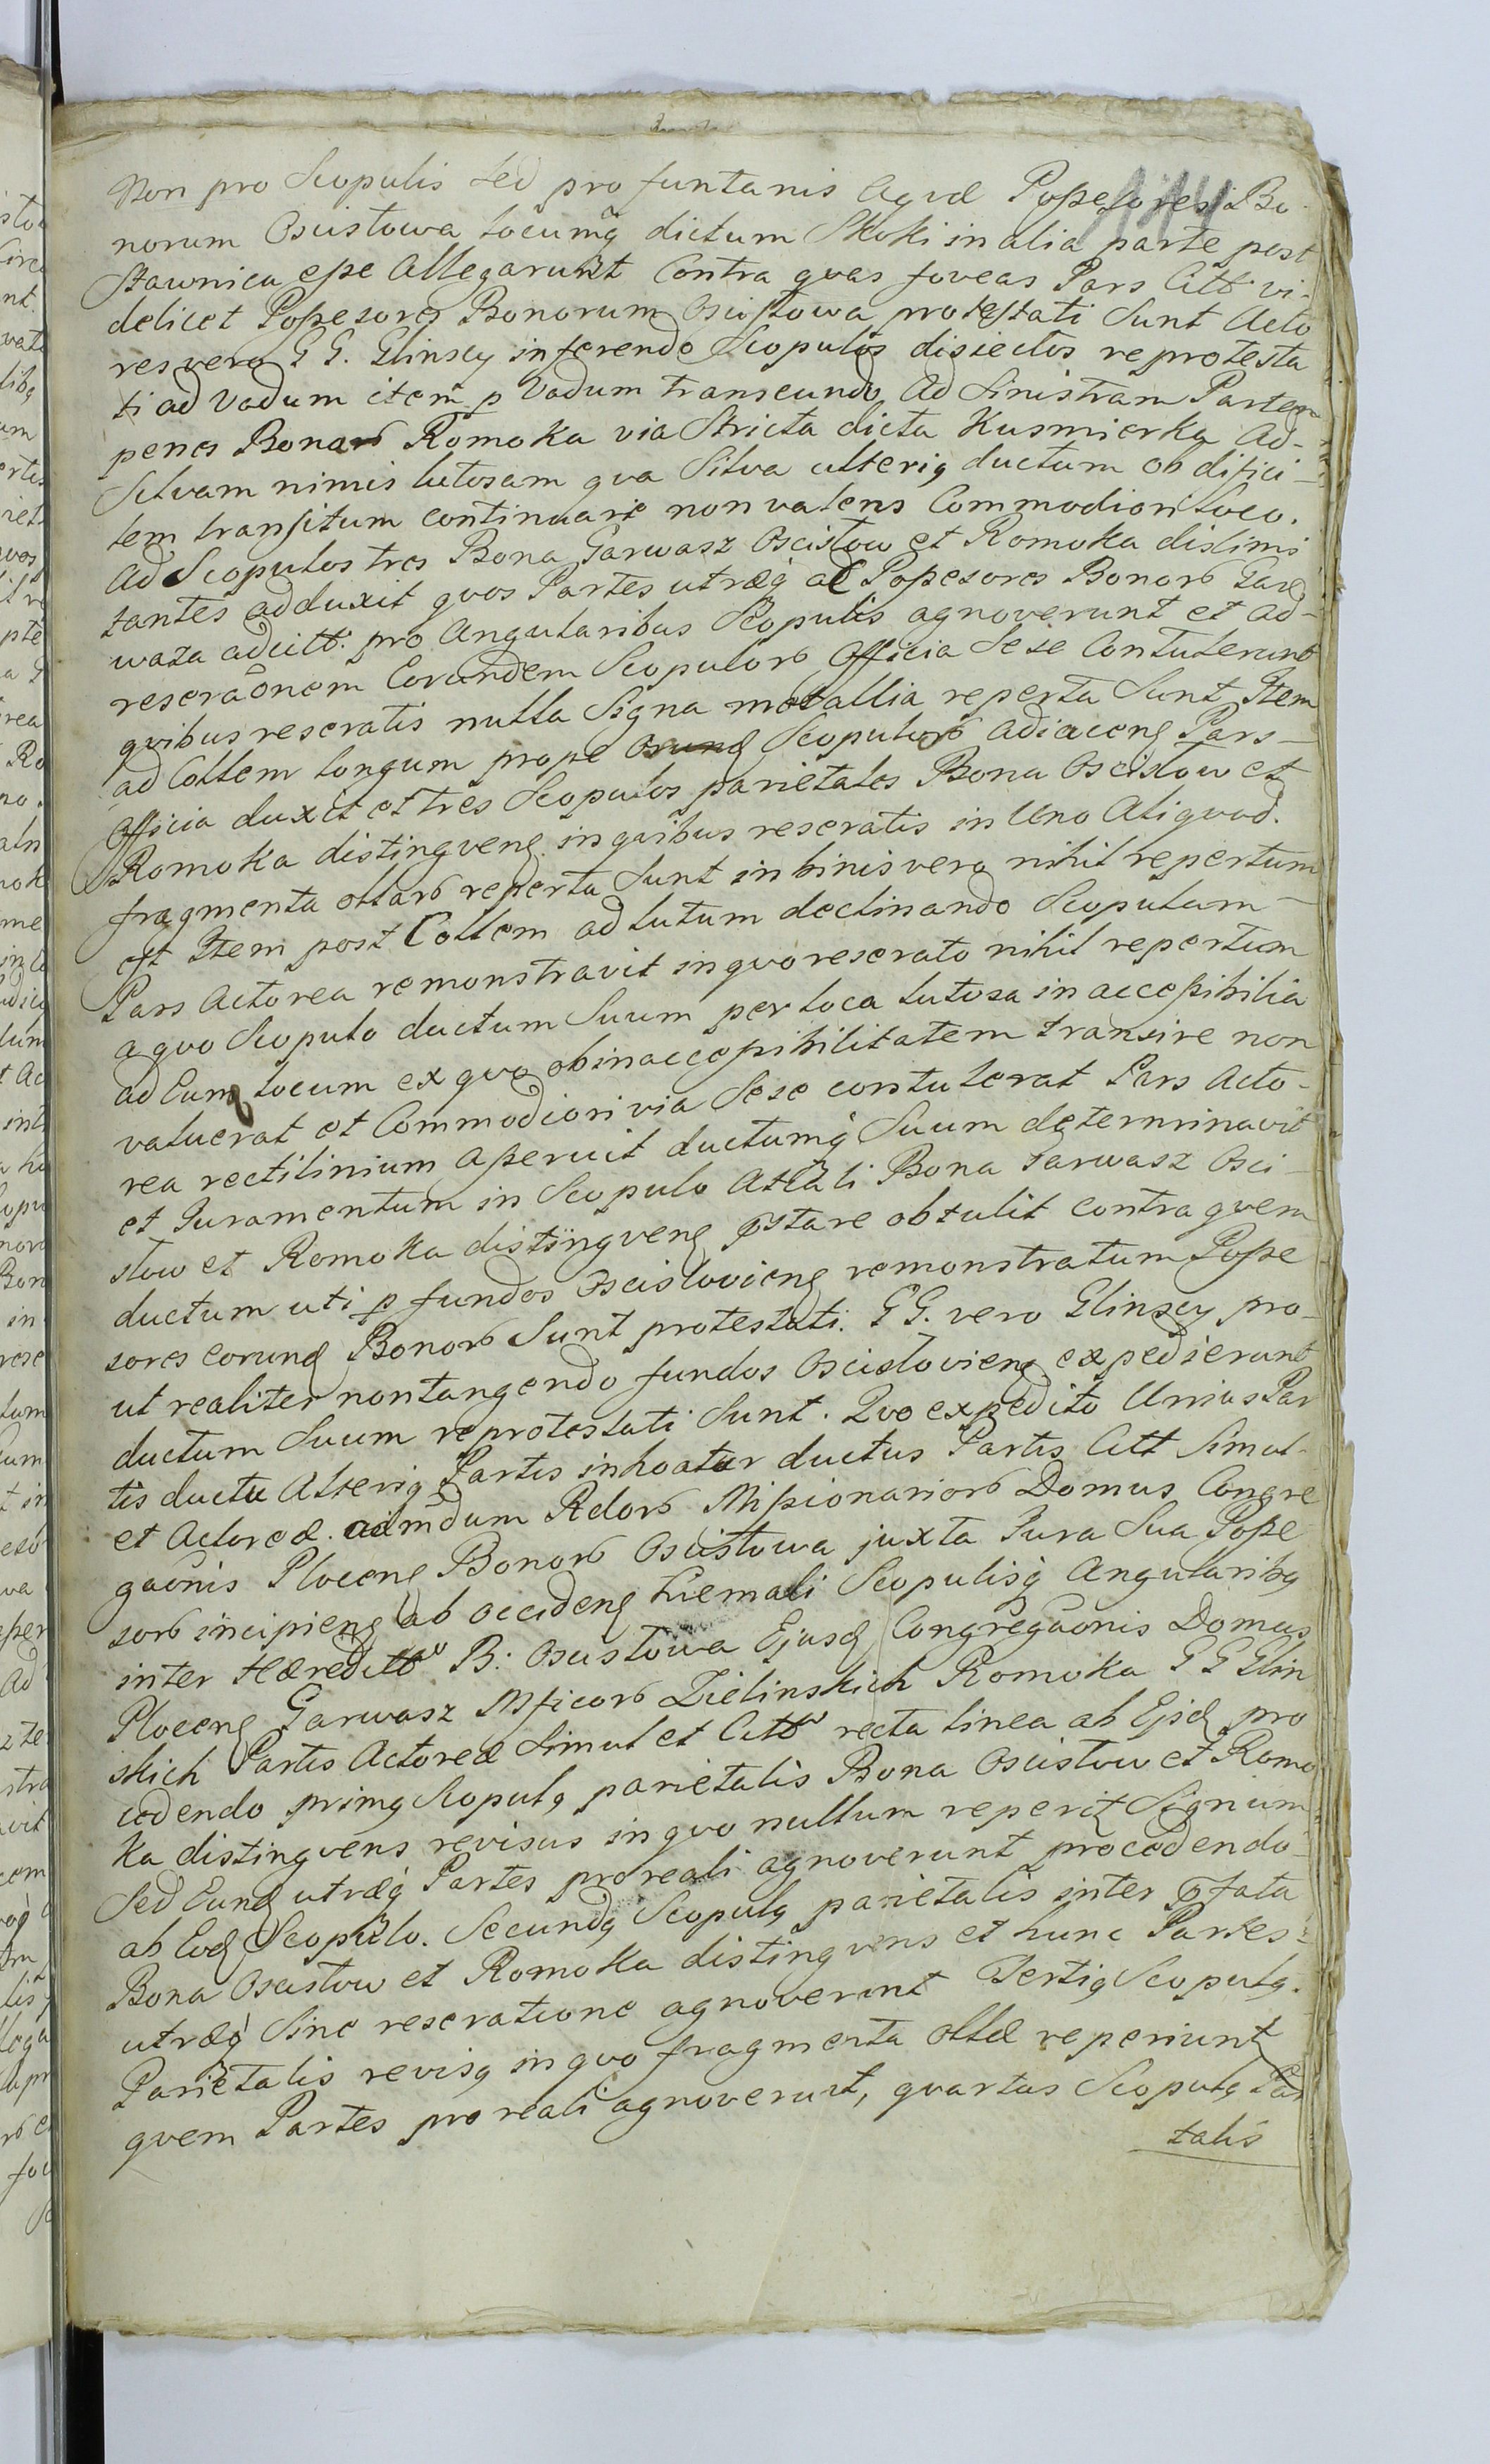 Non pro Scopulis sed pro funtanis Aquæ Possesores Bo-
norum Oscisłowa locumq dictum Skoki in alia parte post
Stawnicu esse Allegarunt Contra quas foveas Pars Citt. vi-
delicet Possesores Bonorum Oscisłowa protestati Sunt Acto
res vero G G. Glinscy inferendo Scopulos disiectos reprotesta
ti ad Vadum item p Vadum transeundo Ad Sinistram Partem
penes Bona Romoka via Stricta dicta Kusmierka Ad-
Silvam nimis lutosam qva Silva ulterig ductum ob difici-
lem transitum continuare non valens Commodiori Loco.
Ad Scopulos tres Bona Garwasz Oscisłow et Romoka distimi
tantes adduxit qvos Partes utræq ac Possesores Bonor Gar
waza adcitt. pro Angularibus Scopulis agnoverunt et ad-
reseraõnem Eorundem Scopulor Officia Sese Contulerunt
qvibus reseratis nulla Signa metallia reperta Sunt Item
ad Collem longum prope Scopulor adiacens Pars-
Officia duxit et tres Scopulos parietales Bona Oscisłow et
Romoka distingvens in qvibus reseratis in Uno Aliqvod.
fragmenta ollar reperta Sunt in binis vero nihil repertum
est Item post Collem ad lutum declinando Scopulum-
Pars Actorea remonstravit in qvo reserato nihil repertum
a qvo Scopulo ductum Suum per loca lutosa in accessibilia
ad Eum locum ex qvo ob inaccessibilitatem transire non
valuerat et Commodiori via Sese contulerat Pars Acto-
rea rectilinium Aperuit ductumq Suum determinavit
et Juramentum in Scopulo Attali Bona Garwasz Osci-
słow et Romoka distingvens pstare obtulit contra qvem
ductum uti p fundos Oscisłoviens remonstratum Posse
sores eorund Bonor Sunt protestati. G G. vero Glinscy pro-
ut realiter non tangendo fundos Oscisłoviens expedierunt
ductum Suum reprotestati Sunt. Qvo expedito Unius Par
tis ductu Alterig Partis inhoatur ductus Partis Citt Simul-
et Actoreæ. admdum Rdor Missionarior Domus Congre
gaõnis Plocens Bonor Oscisłowa juxta Jura Sua Posse
sor incipiens ab occidens Hiemali Scopulisq Angularibq
inter Hæreditt B: Oscisłowa Ejusd Congregaõnis Domus
Plocens Garwasz Mficor Zielinskich Romoka G G Glin
skich Partis Actoreæ Simul et Citt recta linea ab Ejsd pro
cedendo primq Scopulq parietalis Bona Oscisłow et Romo
ka distingvens revisus in qvo nullum reperit Signum
Sed Eund utræq Partes pro reali agnoverunt procedendo
ab Eod Scopulo. Secundq Scopulq parietalis inter pfata
Bona Oscisłow et Romoka distingvens et hunc Partes
utræq Sine reseratione agnoverunt Tertiq Scopulq.
Parietalis revisq in qvo fragmenta ollæ reperiunt
qvem Partes pro reali agnoverunt, qvartus Scopulq Par
talis